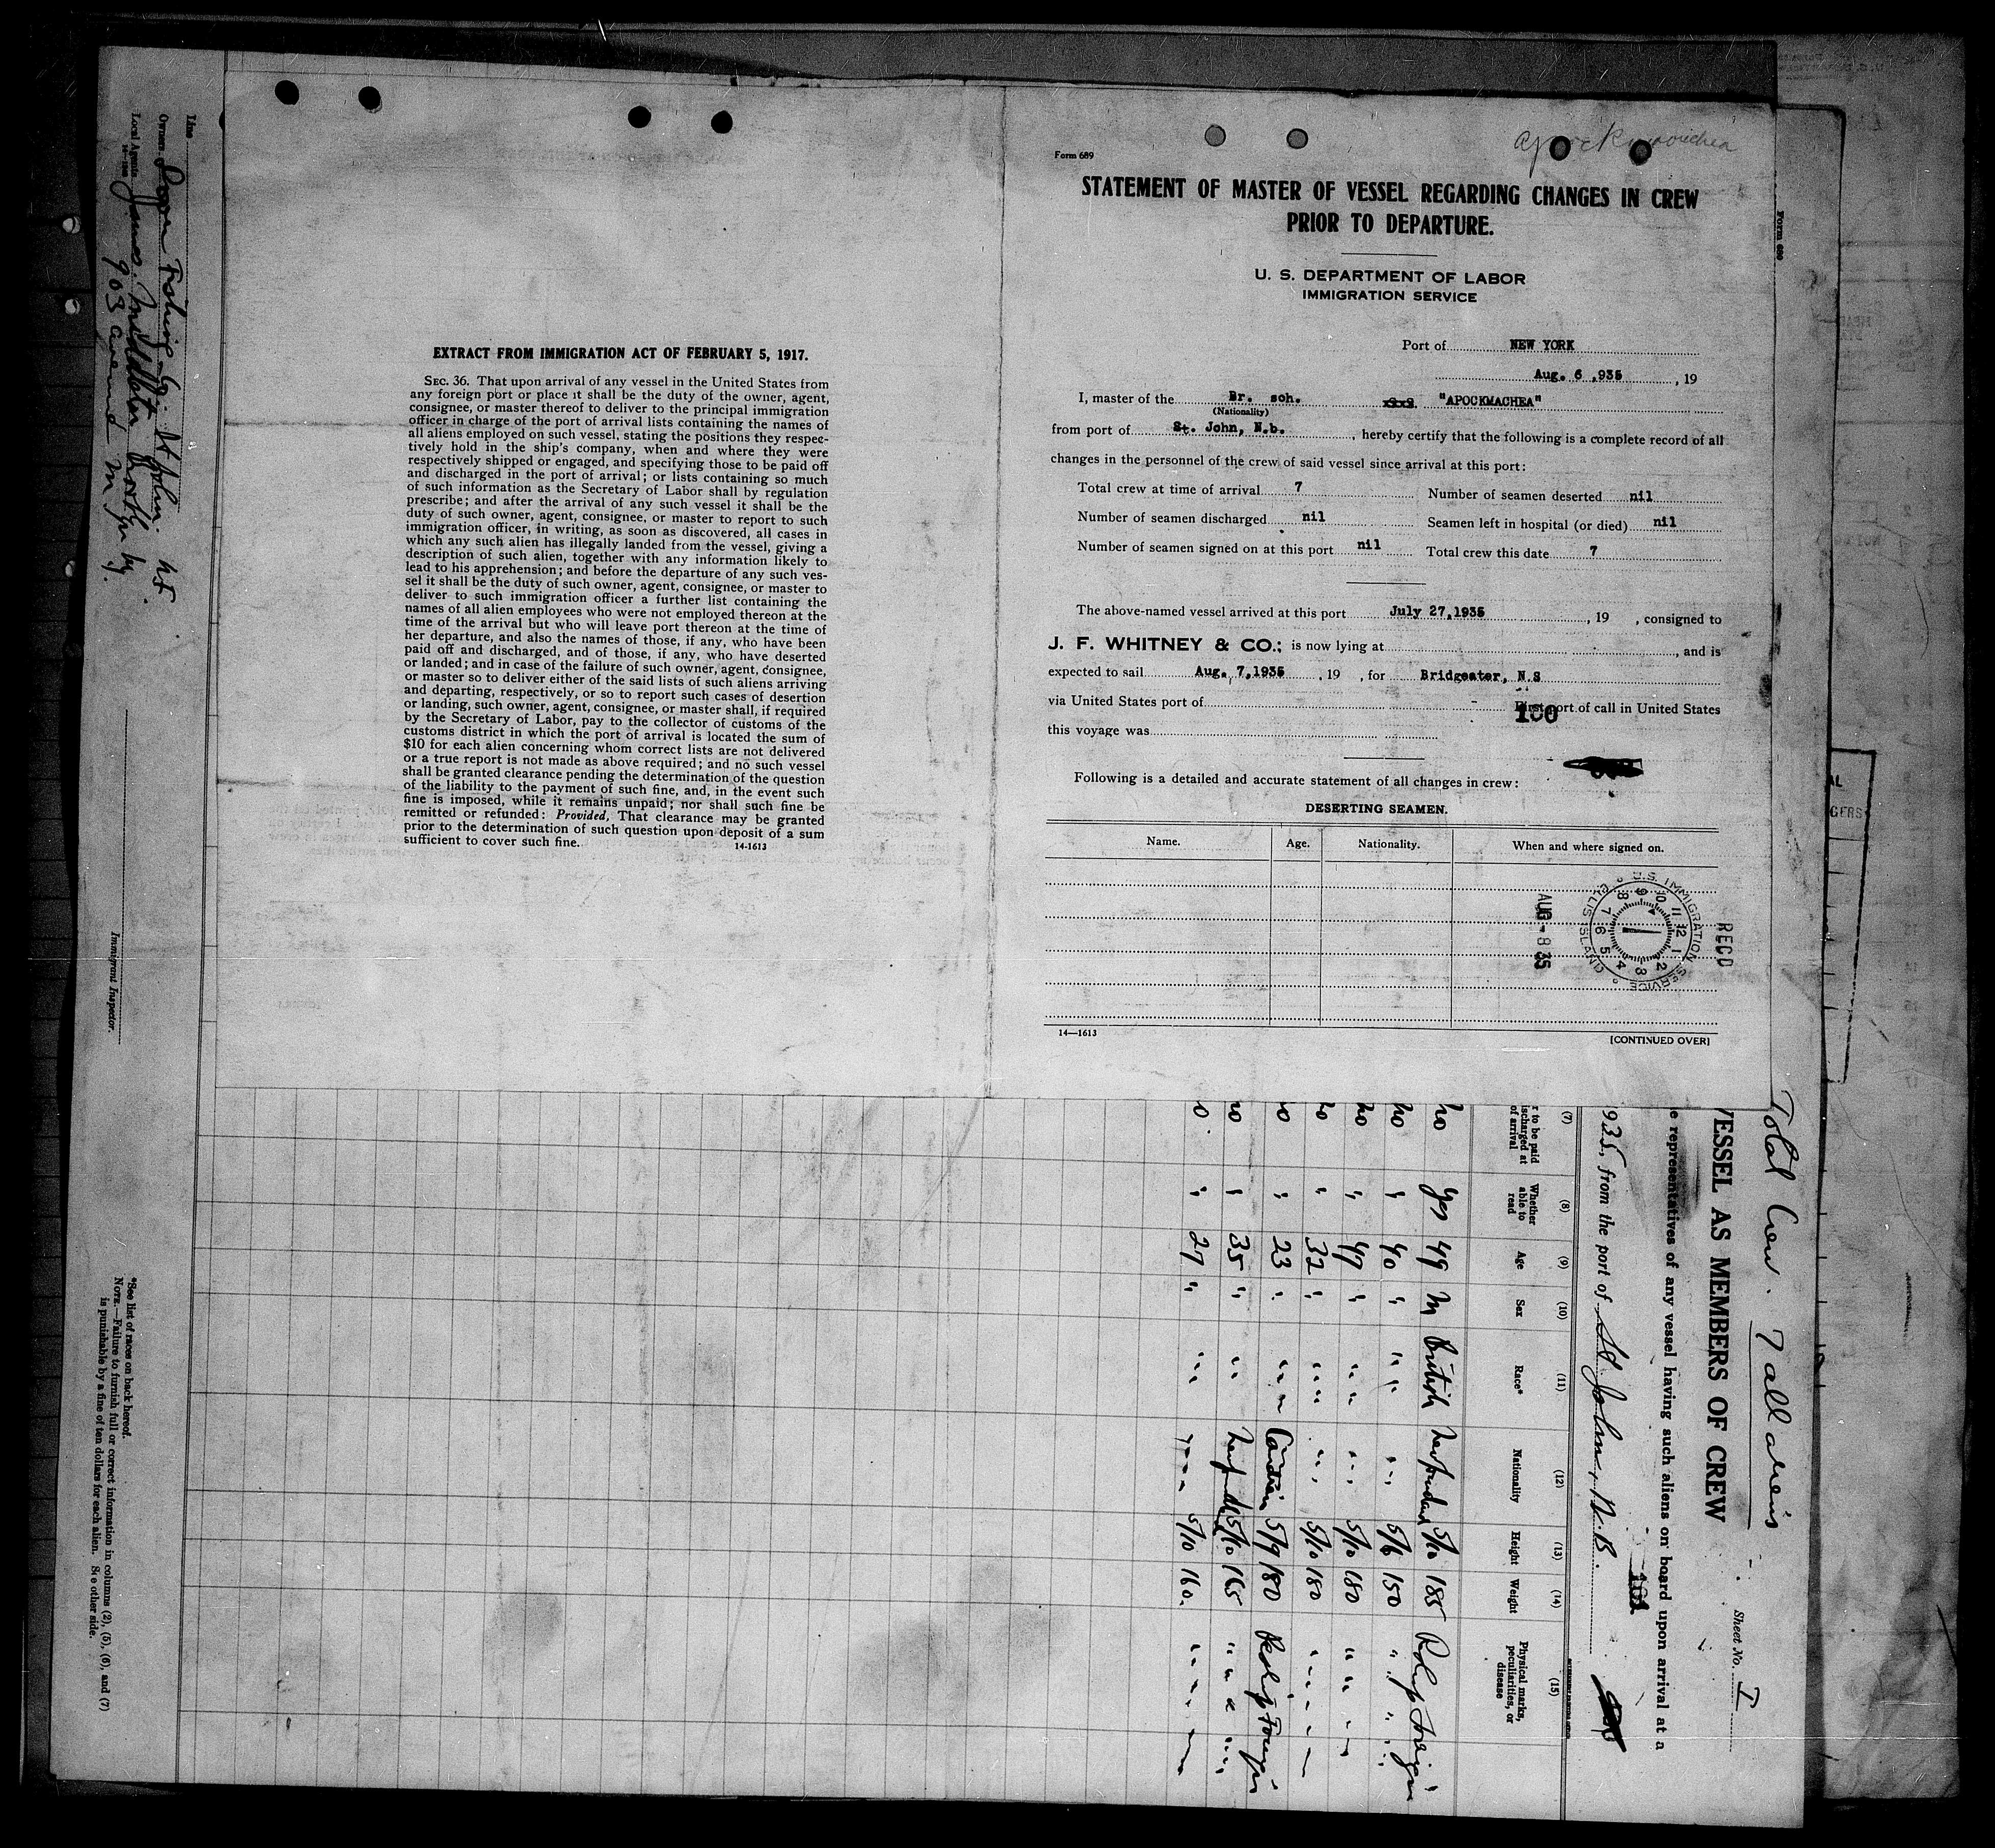 EXTRACT FROM IMMIGRATION ACT OF FEBRUARY 5, 1917.
SEC. 36. That upon arrival of any vessel in the United States from
any foreign port or place it shall be the duty of the owner, agent,
consignee, or master thereof to deliver to the principal immigration
officer in charge of the port of arrival lists containing the names of
all aliens employed on such vessel, stating the positions they respec-
tively hold in the ship's company, when and where they were
respectively shipped or engaged, and specifying those to be paid off
and discharged in the port of arrival; or lists containing so much
of such information as the Secretary of Labor shall by regulation
prescribe; and after the arrival of any such vessel it shall be the
duty of such owner, agent, consignee, or master to report to such
immigration officer, in writing, as soon as discovered, all cases in
which any such alien has illegally landed from the vessel, giving a
description of such alien, together with any information likely to
lead to his apprehension; and before the departure of any such ves-
sel it shall be the duty of such owner, agent, consignee, or master to
deliver to such immigration officer a further list containing the
names of all alien employees who were not employed thereon at the
time of the arrival but who will leave port thereon at the time of
her departure, and also the names of those, if any, who have been
paid off and discharged, and of those, if any, who have deserted
or landed; and in case of the failure of such owner, agent, consignee,
or master so to deliver either of the said lists of such aliens arriving
and departing, respectively, or so to report such cases of desertion
or landing, such owner, agent, consignee, or master shall, if required
by the Secretary of Labor, pay to the collector of customs of the
customs district in which the port of arrival is located the sum of
$10 for each alien concerning whom correct lists are not delivered
or a true report is not made as above required; and no such vessel
shall be granted clearance pending the determination of the question
of the liability to the payment of such fine, and, in the event such
fine is imposed, while it remains unpaid; nor shall such fine be
remitted or refunded: Provided, That clearance may be granted
prior to the determination of such question upon deposit of a sum
sufficient to cover such fine. 14-1613
Form 689
STATEMENT OF MASTER OF VESSEL REGARDING CHANGES IN CREW
PRIOR TO DEPARTURE.
U. S. DEPARTMENT OF LABOR
IMMIGRATION SERVICE
Port of NEW YORK
Aug. 6 ,935 , 19
I, master of the Br. sch. "APOCKMACHEA"
(Nationality)
from port of St. John, N.b. , hereby certify that the following is a complete record of all
changes in the personnel of the crew of said vessel since arrival at this port:
Total crew at time of arrival 7 Number of seamen deserted nil
Number of seamen discharged nil Seamen left in hospital (or died) nil
Number of seamen signed on at this port nil Total crew this date 7
The above-named vessel arrived at this port July 27,1935 , 19 , consigned to
J. F. WHITNEY & CO.; is now lying at , and is
expected to sail Aug. 7,1935 , 19 , for Bridgeater, N.S
via United States port of First port of call in United States
100
this voyage was
Following is a detailed and accurate statement of all changes in crew:
DESERTING SEAMEN.
Name. Age. Nationality. When and where signed on.
RECD
U.S. IMMIGRATION SERVICE ELLIS ISLAND
1 2 3 4 5 6 7 8 9 10 11 12
AUG - 8 35
14—1613
[CONTINUED OVER]
Form 689
Total Crew. 7 all aliens
Sheet No. I
VESSEL AS MEMBERS OF CREW
e representatives of any vessel having such aliens on board upon arrival at a
935, from the port of St John, N.B.
(7) (8) (9) (10) (11) (12) (13) (14) (15)
r to be paid
ischarged at
of arrival
Whether
able to
read
Age
Sex
Race*
Nationality
Height
Weight
Physical marks,
peculiarities, or
disease
no Yes 49 M British 5/10 185
no " 40 " " " " " 5/6 150 " "
no " 47 " " " " " 5/10 180 " "
no " 32 " " " " " 5/10 180 " "
no " 23 " " " 5/9 180
no " 35 " " " 5/10 165 " "
no " 27 " " " " " 5/10 160 " "
Line
Owners
Local Agents James
903
Immigrant Inspector.
*See list of races on back hereof.
NOTE.—Failure to furnish full or correct information in columns (2), (5), (6), and (7)
is punishable by a fine of ten dollars for each alien. See other side.